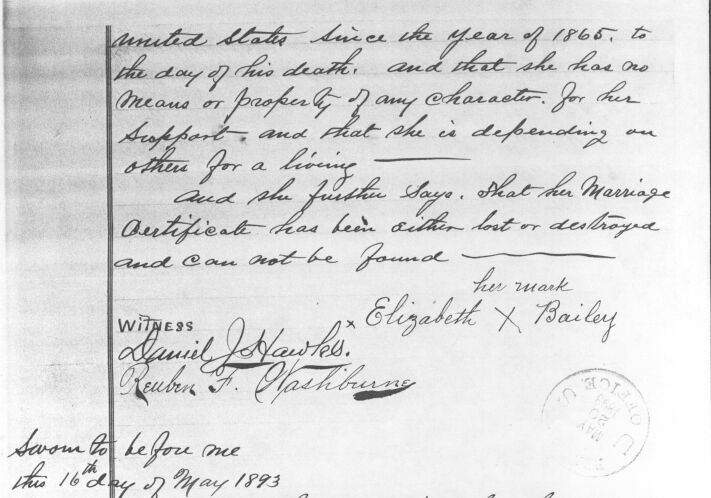 united States since the year of 1865. to
the day of his death. and that she has no
means or property of any character. for her
support. and that she is depending on
others for a living
and she further says. that her Marriage
Certificate has been either lost or destroyed
and can not be found
her mark
Elizabeth X Bailey
WITNESS
Daniel J Hawks.
Reuben F. Washburne
U OFFICE U.S.
MAY
20
1893
Sworn to before me
this 16th day of May 1893